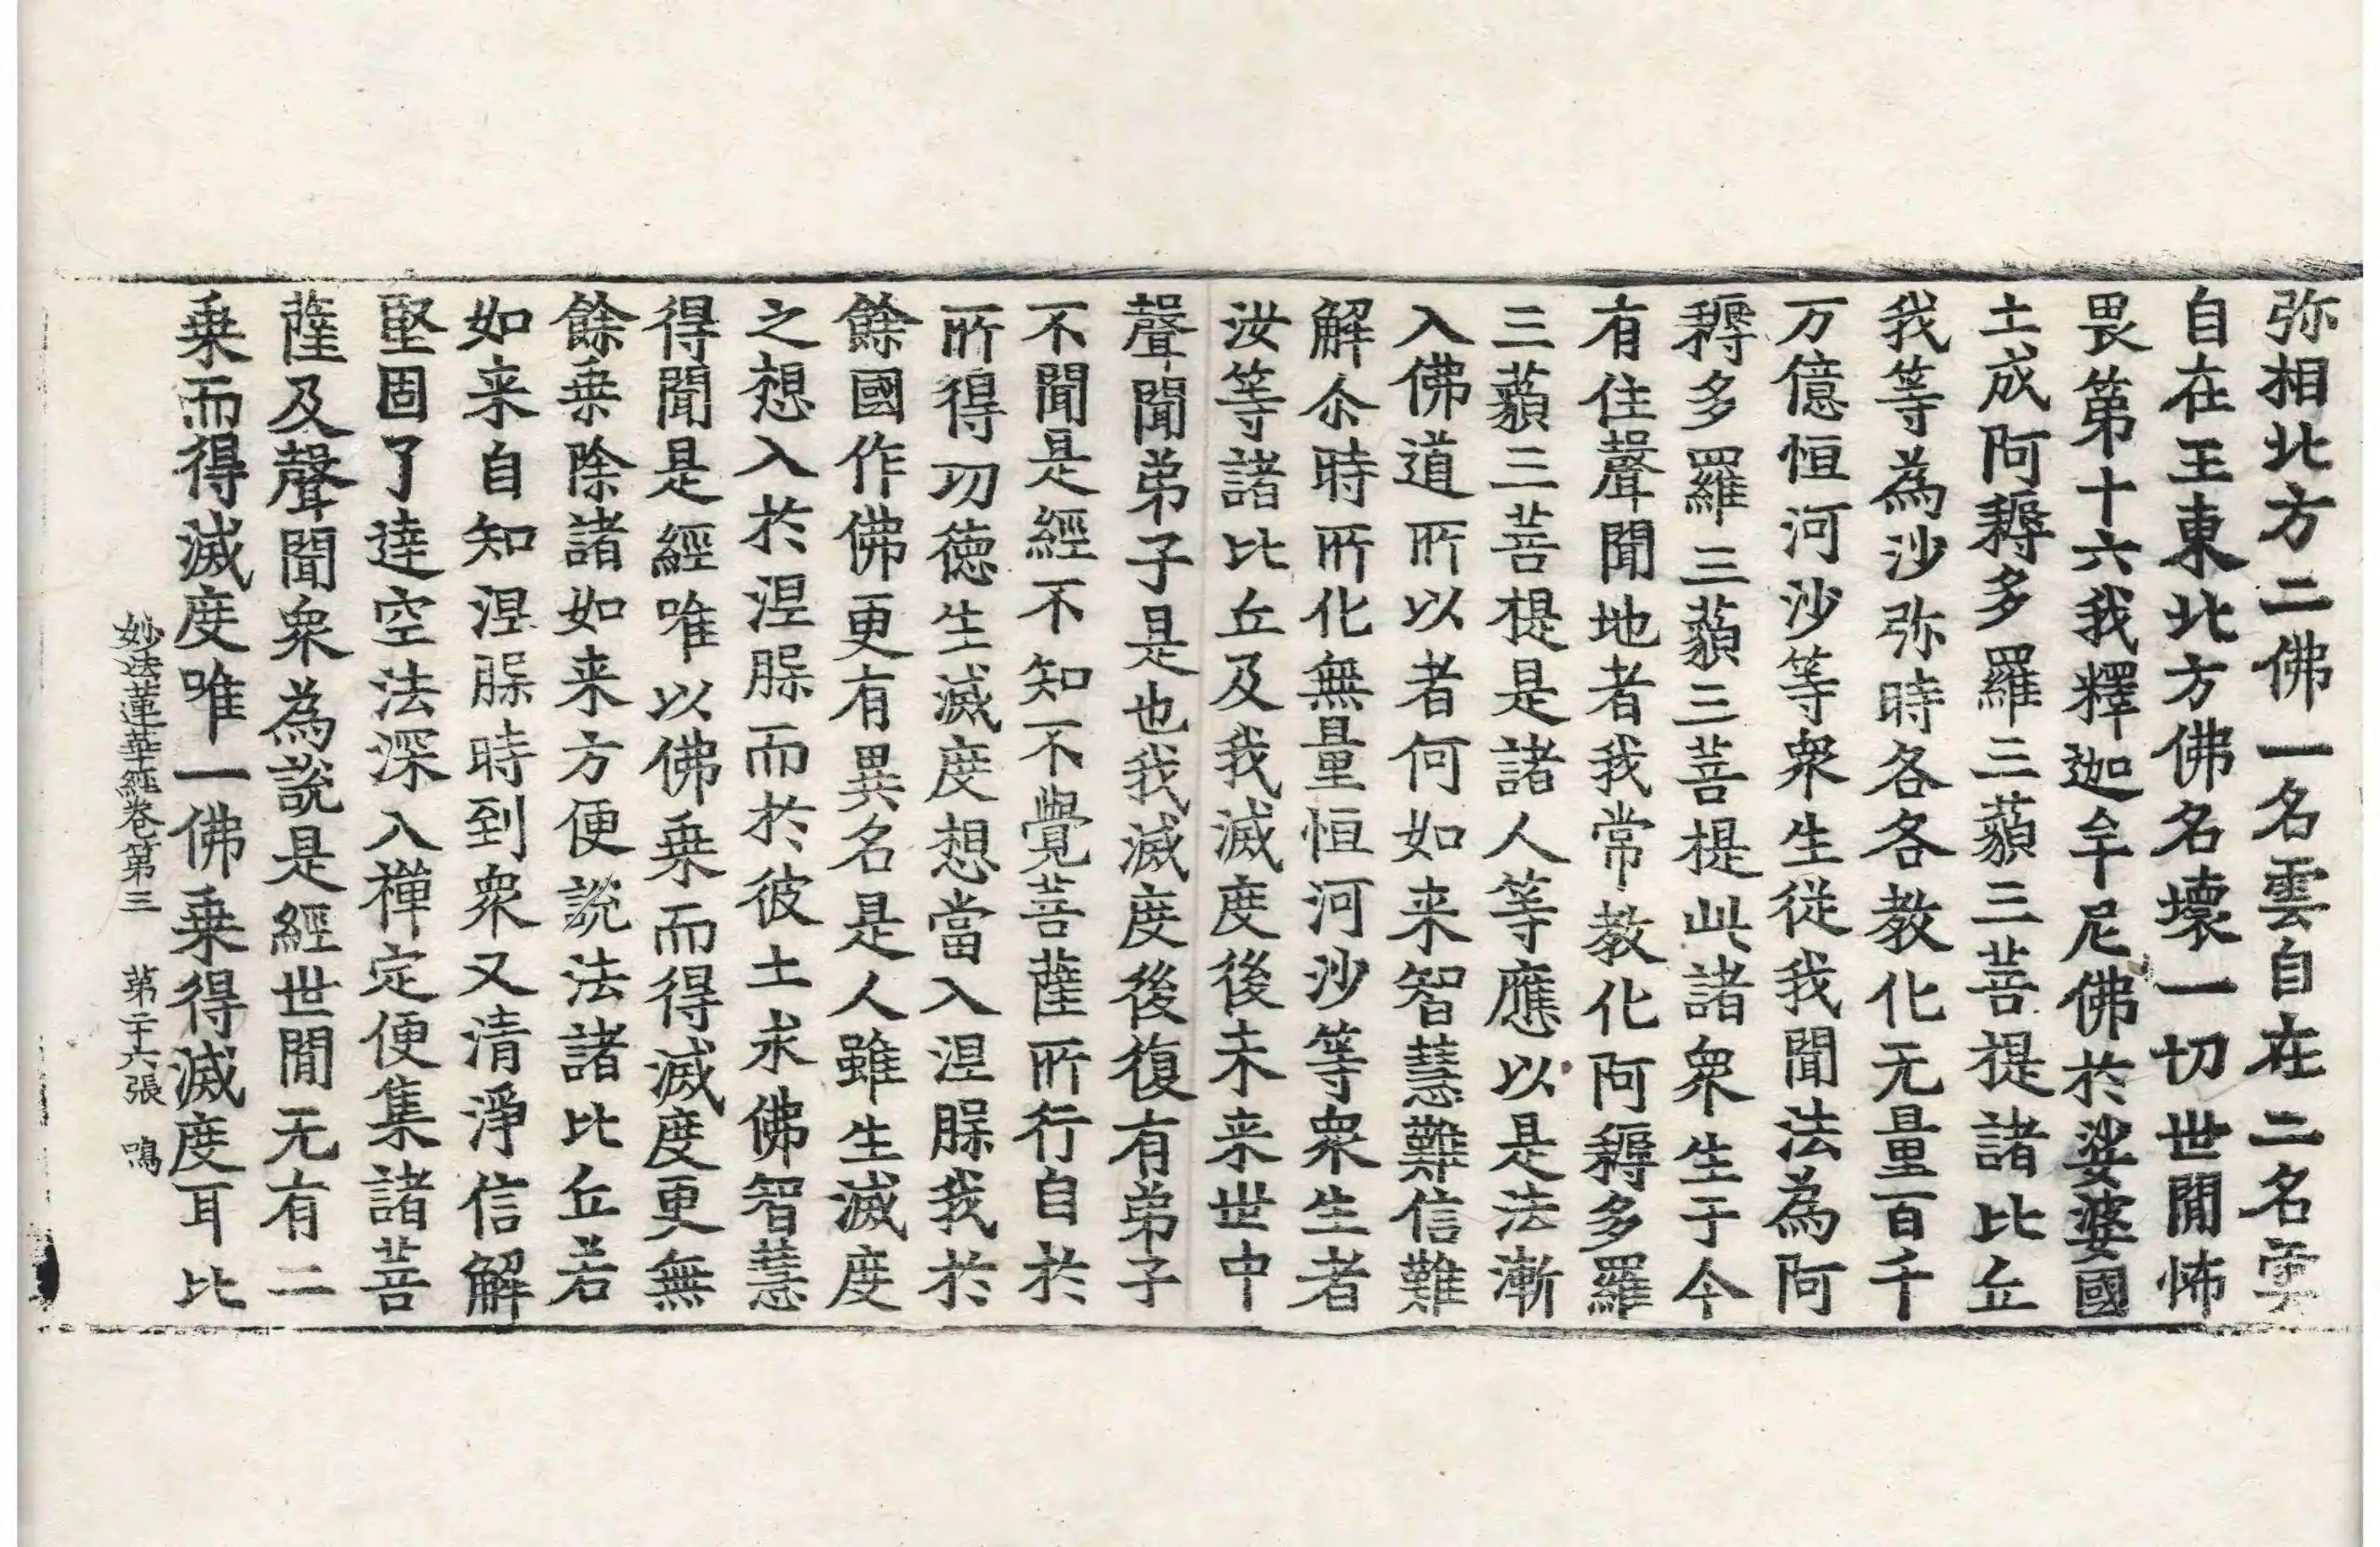 弥相北方二佛一名雲自在二名雲
自在王東北方佛名壞一切世閒怖
畏第十六我釋迦牟尼佛於娑婆國
土成阿耨多羅三藐三菩提諸比丘
我等為沙弥時各各教化无量百千
万億恒河沙等衆生従我聞法為阿
耨多羅三藐三菩提此諸衆生于今
有住聲聞地者我常教化阿耨多羅
三藐三菩提是諸人等應以是法漸
入佛道所以者何如来智慧難信難
解尒時所化無量恒河沙等衆生者
汝等諸比丘及我滅度後未来世中
聲聞弟子是也我滅度後復有弟子
不聞是經不知不覺菩薩所行自於
所得功德生滅度想當入涅槃我於
餘國作佛更有異名是人雖生滅度
之想入於涅槃而於彼土求佛智慧
得聞是經唯以佛乗而得滅度更無
餘乗除諸如来方便說法諸比丘若
如来自知涅槃時到衆又清淨信解
堅固了達空法深入禪定便集諸菩
薩及聲聞衆為說是經世閒无有二
乗而得滅度唯一佛乗得滅度耳比
妙法蓮華經卷第三 第二十六張 鳴